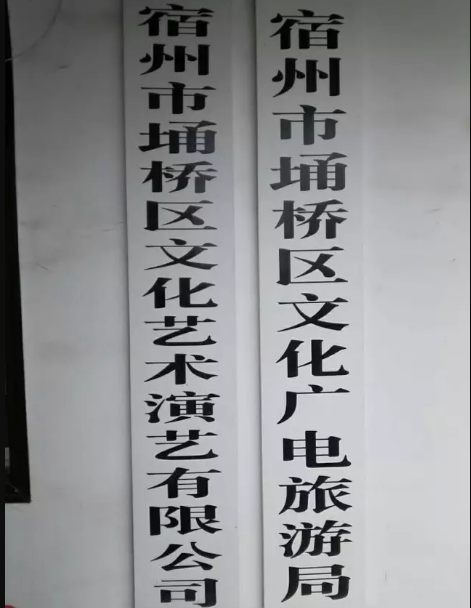 宿州市埇桥区文化广电旅游局
宿州市埇桥区文化艺术演艺有限公司